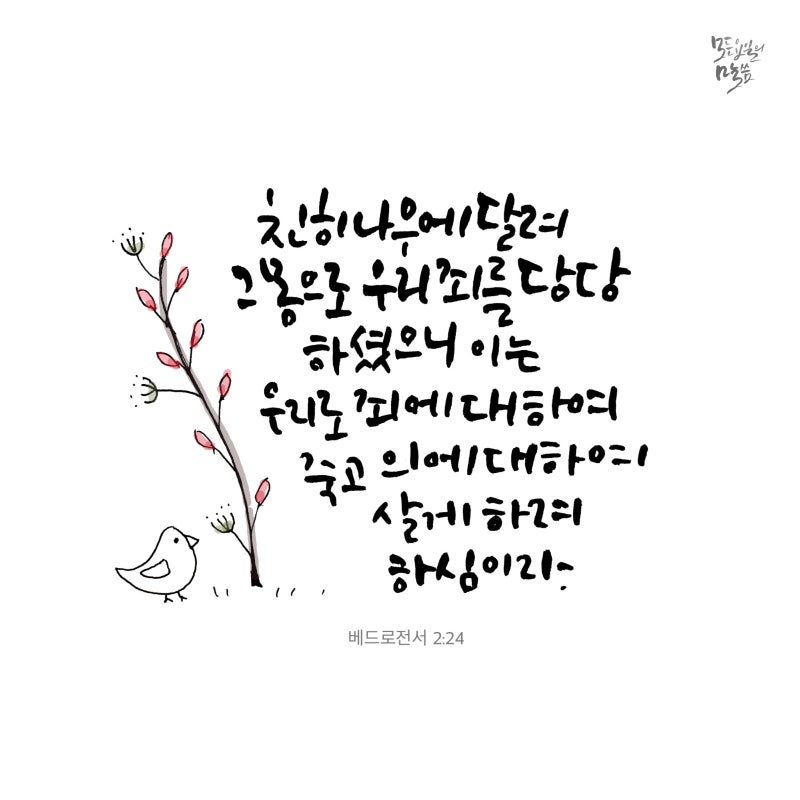 모든요일의
말씀
친히 나무에 달려
그 몸으로 우리 죄를 담당
하셨으니 이는
우리로 죄에 대하여
죽고 의에 대하여
살게 하려
하심이라
베드로전서 2:24